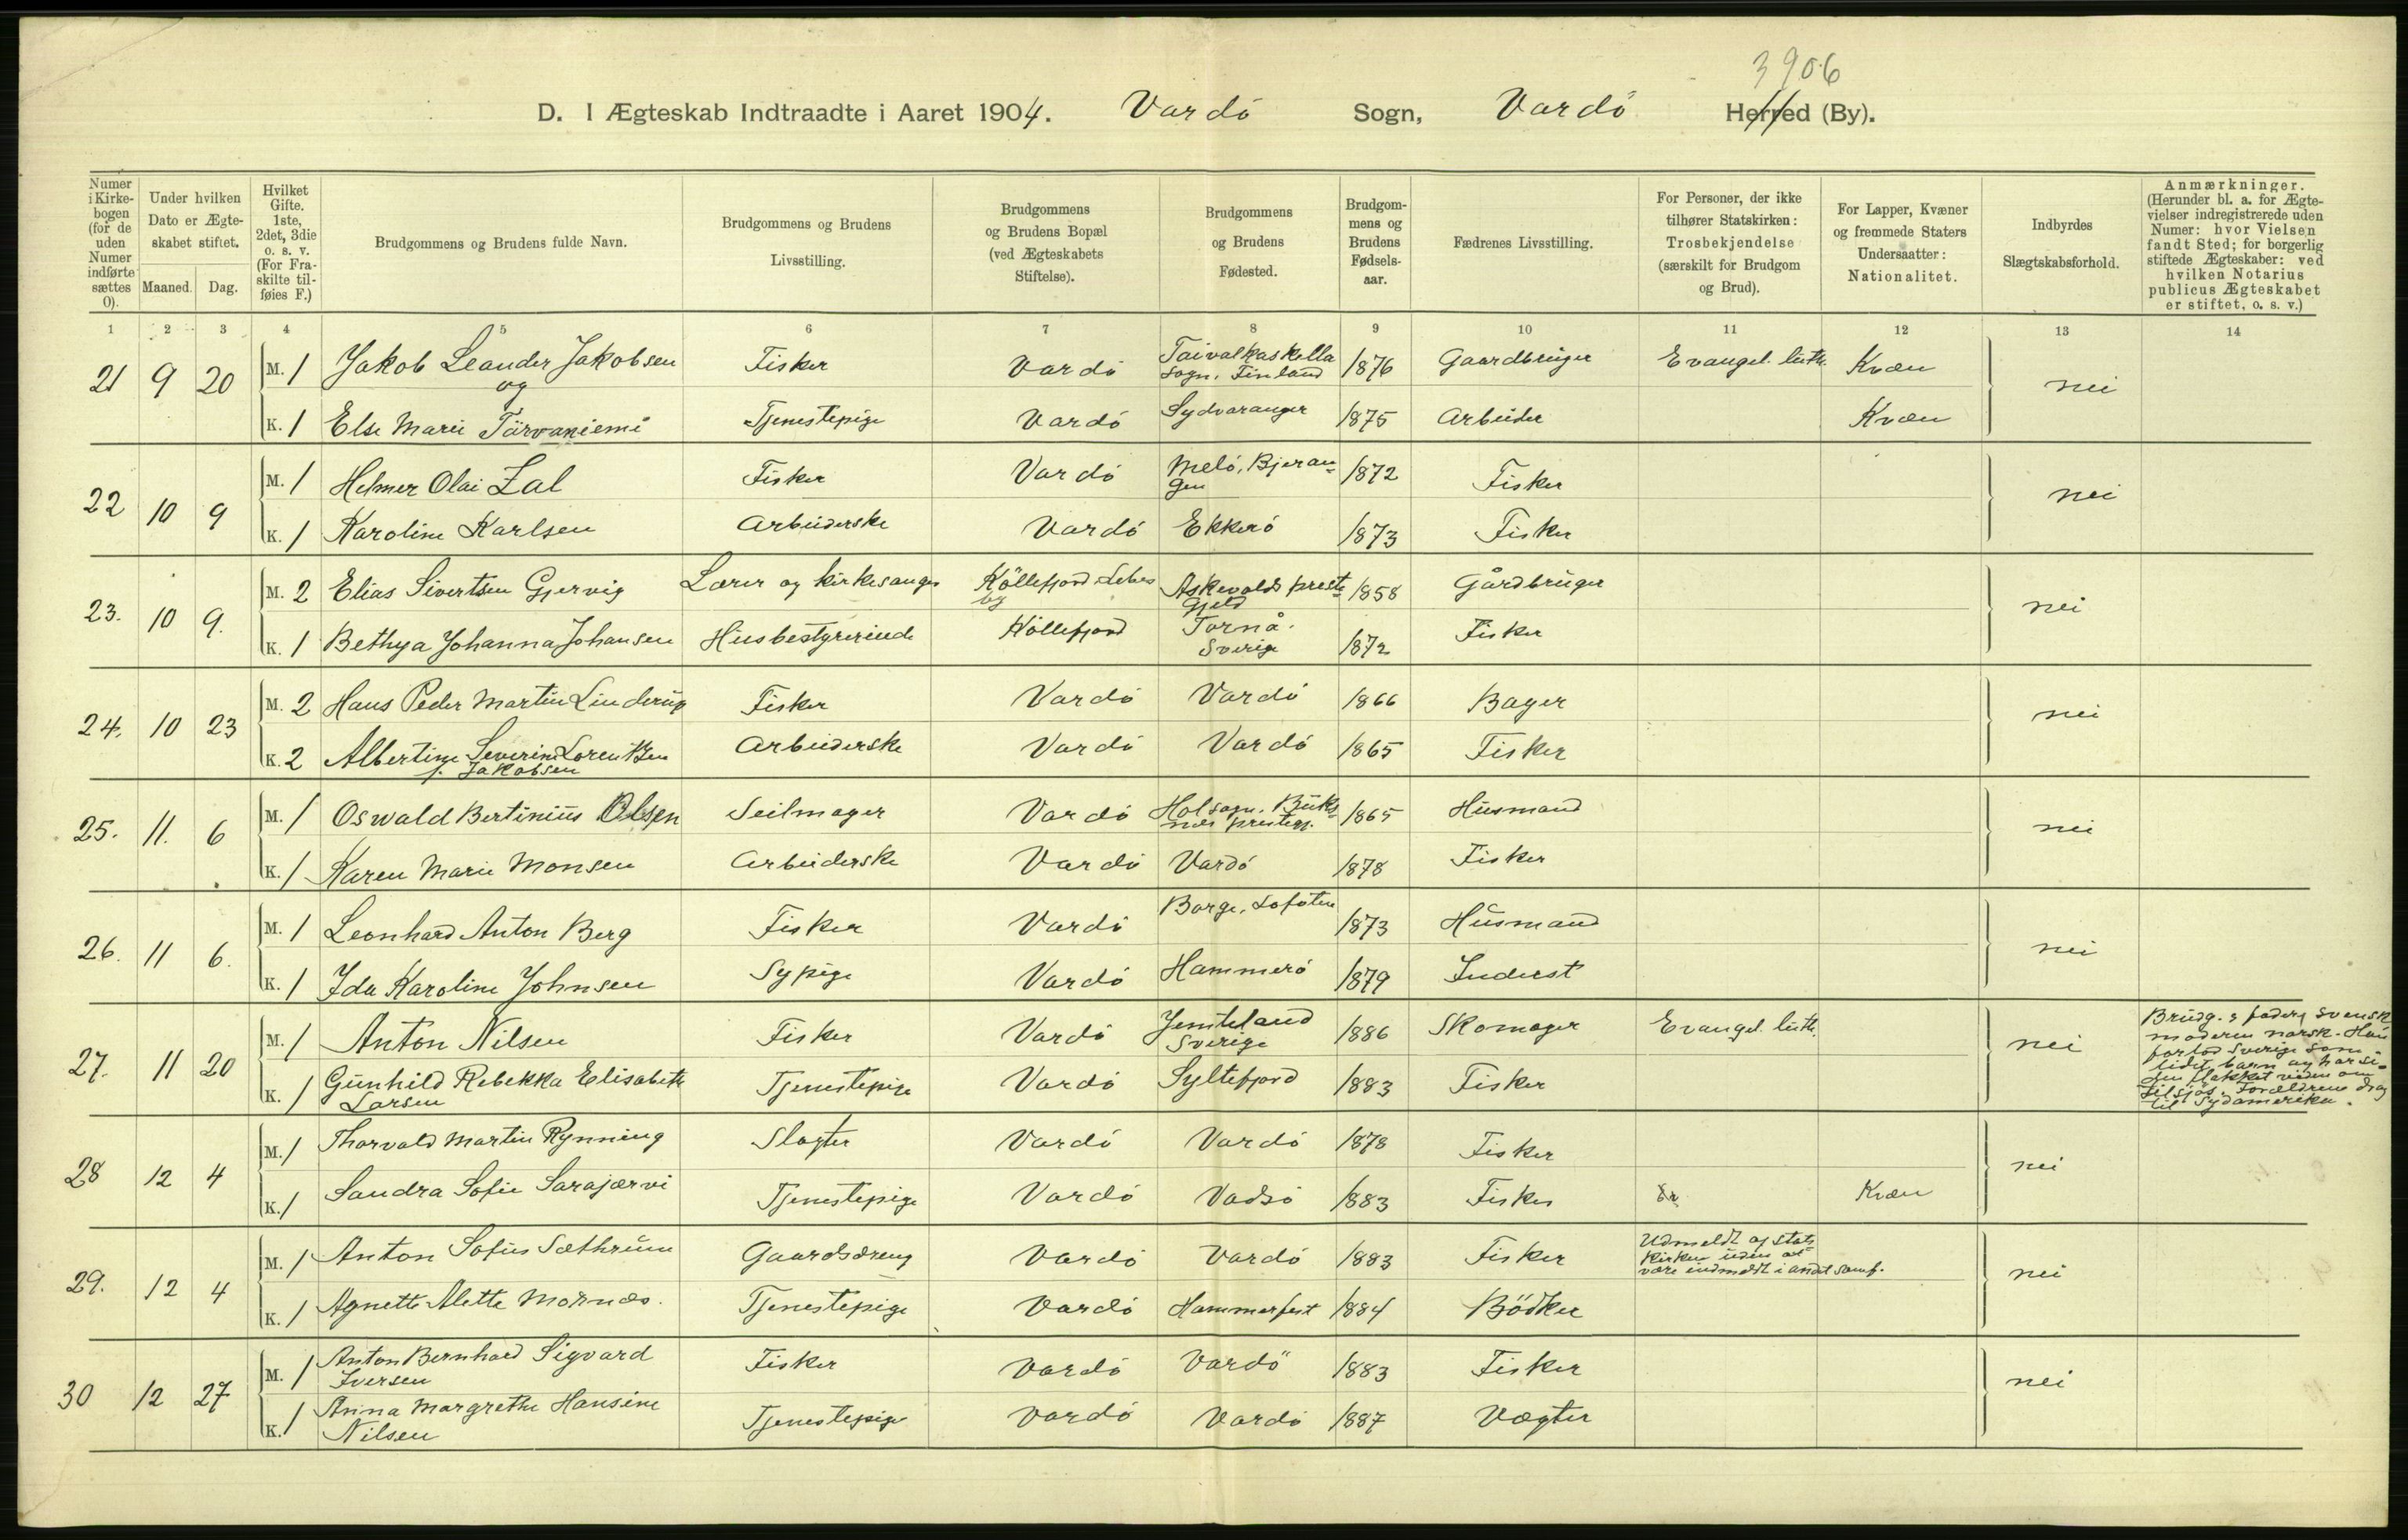 3906
D. I Ægteskab Indtraadte i Aaret 1904. Vardö Sogn, Vardö Herred (By).
Numer i Kirkebogen (for de uden Numer indførte sættes 0).
Under hvilken Dato er Ægteskabet stiftet.
Maaned. Dag.
Hvilket Gifte. 1ste, 2det, 3die o. s. v. (For Fraskilte tilføies F.)
Brudgommens og Brudens fulde Navn.
Brudgommens og Brudens Livsstilling.
Brudgommens og Brudens Bopæl (ved Ægteskabets Stiftelse).
Brudgommens og Brudens Fødested.
Brudgommens og Brudens Fødselsaar.
Fædrenes Livsstilling.
For Personer, der ikke tilhører Statskirken: Trosbekjendelse (særskilt for Brudgom og Brud).
For Lapper, Kvæner og fremmede Staters Undersaatter: Nationalitet.
Indbyrdes Slægtskabsforhold.
Anmærkninger. (Herunder bl. a. for Ægtevielser indregistrerede uden Numer: hvor Vielsen fandt Sted; for borgerlig stiftede Ægteskaber: ved hvilken Notarius publicus Ægteskabet er stiftet, o. s. v.)
1 2 3 4 5 6 7 8 9 10 11 12 13 14
21 9 20 M. 1 Jakob Leander Jakobsen og Fisker Vardö Taivalkaskella Sogn. Finland 1876 Gaardbruger Evangel. luth. Kvæn nei
K. 1 Else Marie Tärvaniemi Tjenestepige Vardö Sydvaranger 1875 Arbeider Kvæn
22 10 9 M. 1 Helmer Olai Zal Fisker Vardö Melö, Bjerangen 1872 Fisker nei
K. 1 Karoline Karlsen Arbeiderske Vardö Ekkerö 1873 Fisker
23. 10 9. M. 2 Elias Sivertsen Gjervig Lærer og kirkesanger Köllefjord Lebesby Askevolds prestegjeld 1858 Gårdbruger nei
K. 1 Bethya Johanna Johansen Husbestyrerinde Köllefjord Tornå. Sverige 1872 Fisker
24. 10 23 M. 2 Hans Peder Martin Linderup Fisker Vardö Vardö 1866 Bager nei
K. 2 Albertine Severine Lorentzen f. Jakobsen Arbeiderske Vardö Vardö 1865 Fisker
25. 11. 6 M. 1 Oswald Bertinius Olsen Seilmager Vardö Hol sogn. Buksnes prestegj. 1865 Husmand nei
K. 1 Karen Marie Monsen Arbeiderske Vardö Vardö 1878 Fisker
26. 11 6. M. 1 Leonhard Anton Berg Fisker Vardö Borge, Lofoten 1873 Husmand nei
K. 1 Ida Karoline Johnsen Sypige Vardö Hammerö 1879 Inderst
27. 11 20 M. 1 Anton Nilsen Fisker Vardö Jemteland Sverige 1886 Skomager Evangel. luth. nei
Brudg.s fader svensk
moderen norsk. Han
forlod Sverige som
lidet barn og har si-
den flakket viden om
tilsjös. Forældrene drog
til Sydamerika.
K. 1 Gunhild Rebekka Elisabeth Larsen Tjenestepige Vardö Syltefjord 1883 Fisker
28 12 4 M. 1 Thorvald Martin Rynning Slagter Vardö Vardö 1878 Fisker nei
K. 1 Sandra Sofie Sarajærvi Tjenestepige Vardö Vadsö 1883 Fisker Kvæn
29. 12 4 M. 1 Anton Sofus Sæthrum Gaardsdreng Vardö Vardö 1883 Fisker Udmeldt af stats kirken uden at være indmeldt i andet samf. nei
K. 1 Agnette Alette Mornæs. Tjenestepige Vardö Hammerfest 1884 Bödker
30 12 27 M. 1 Anton Bernhard Sigvard Iversen Fisker Vardö Vardö 1883 Fisker nei
K. 1 Anna Margrethe Hansine Nilsen Tjenestepige Vardö Vardö 1887 Vægter